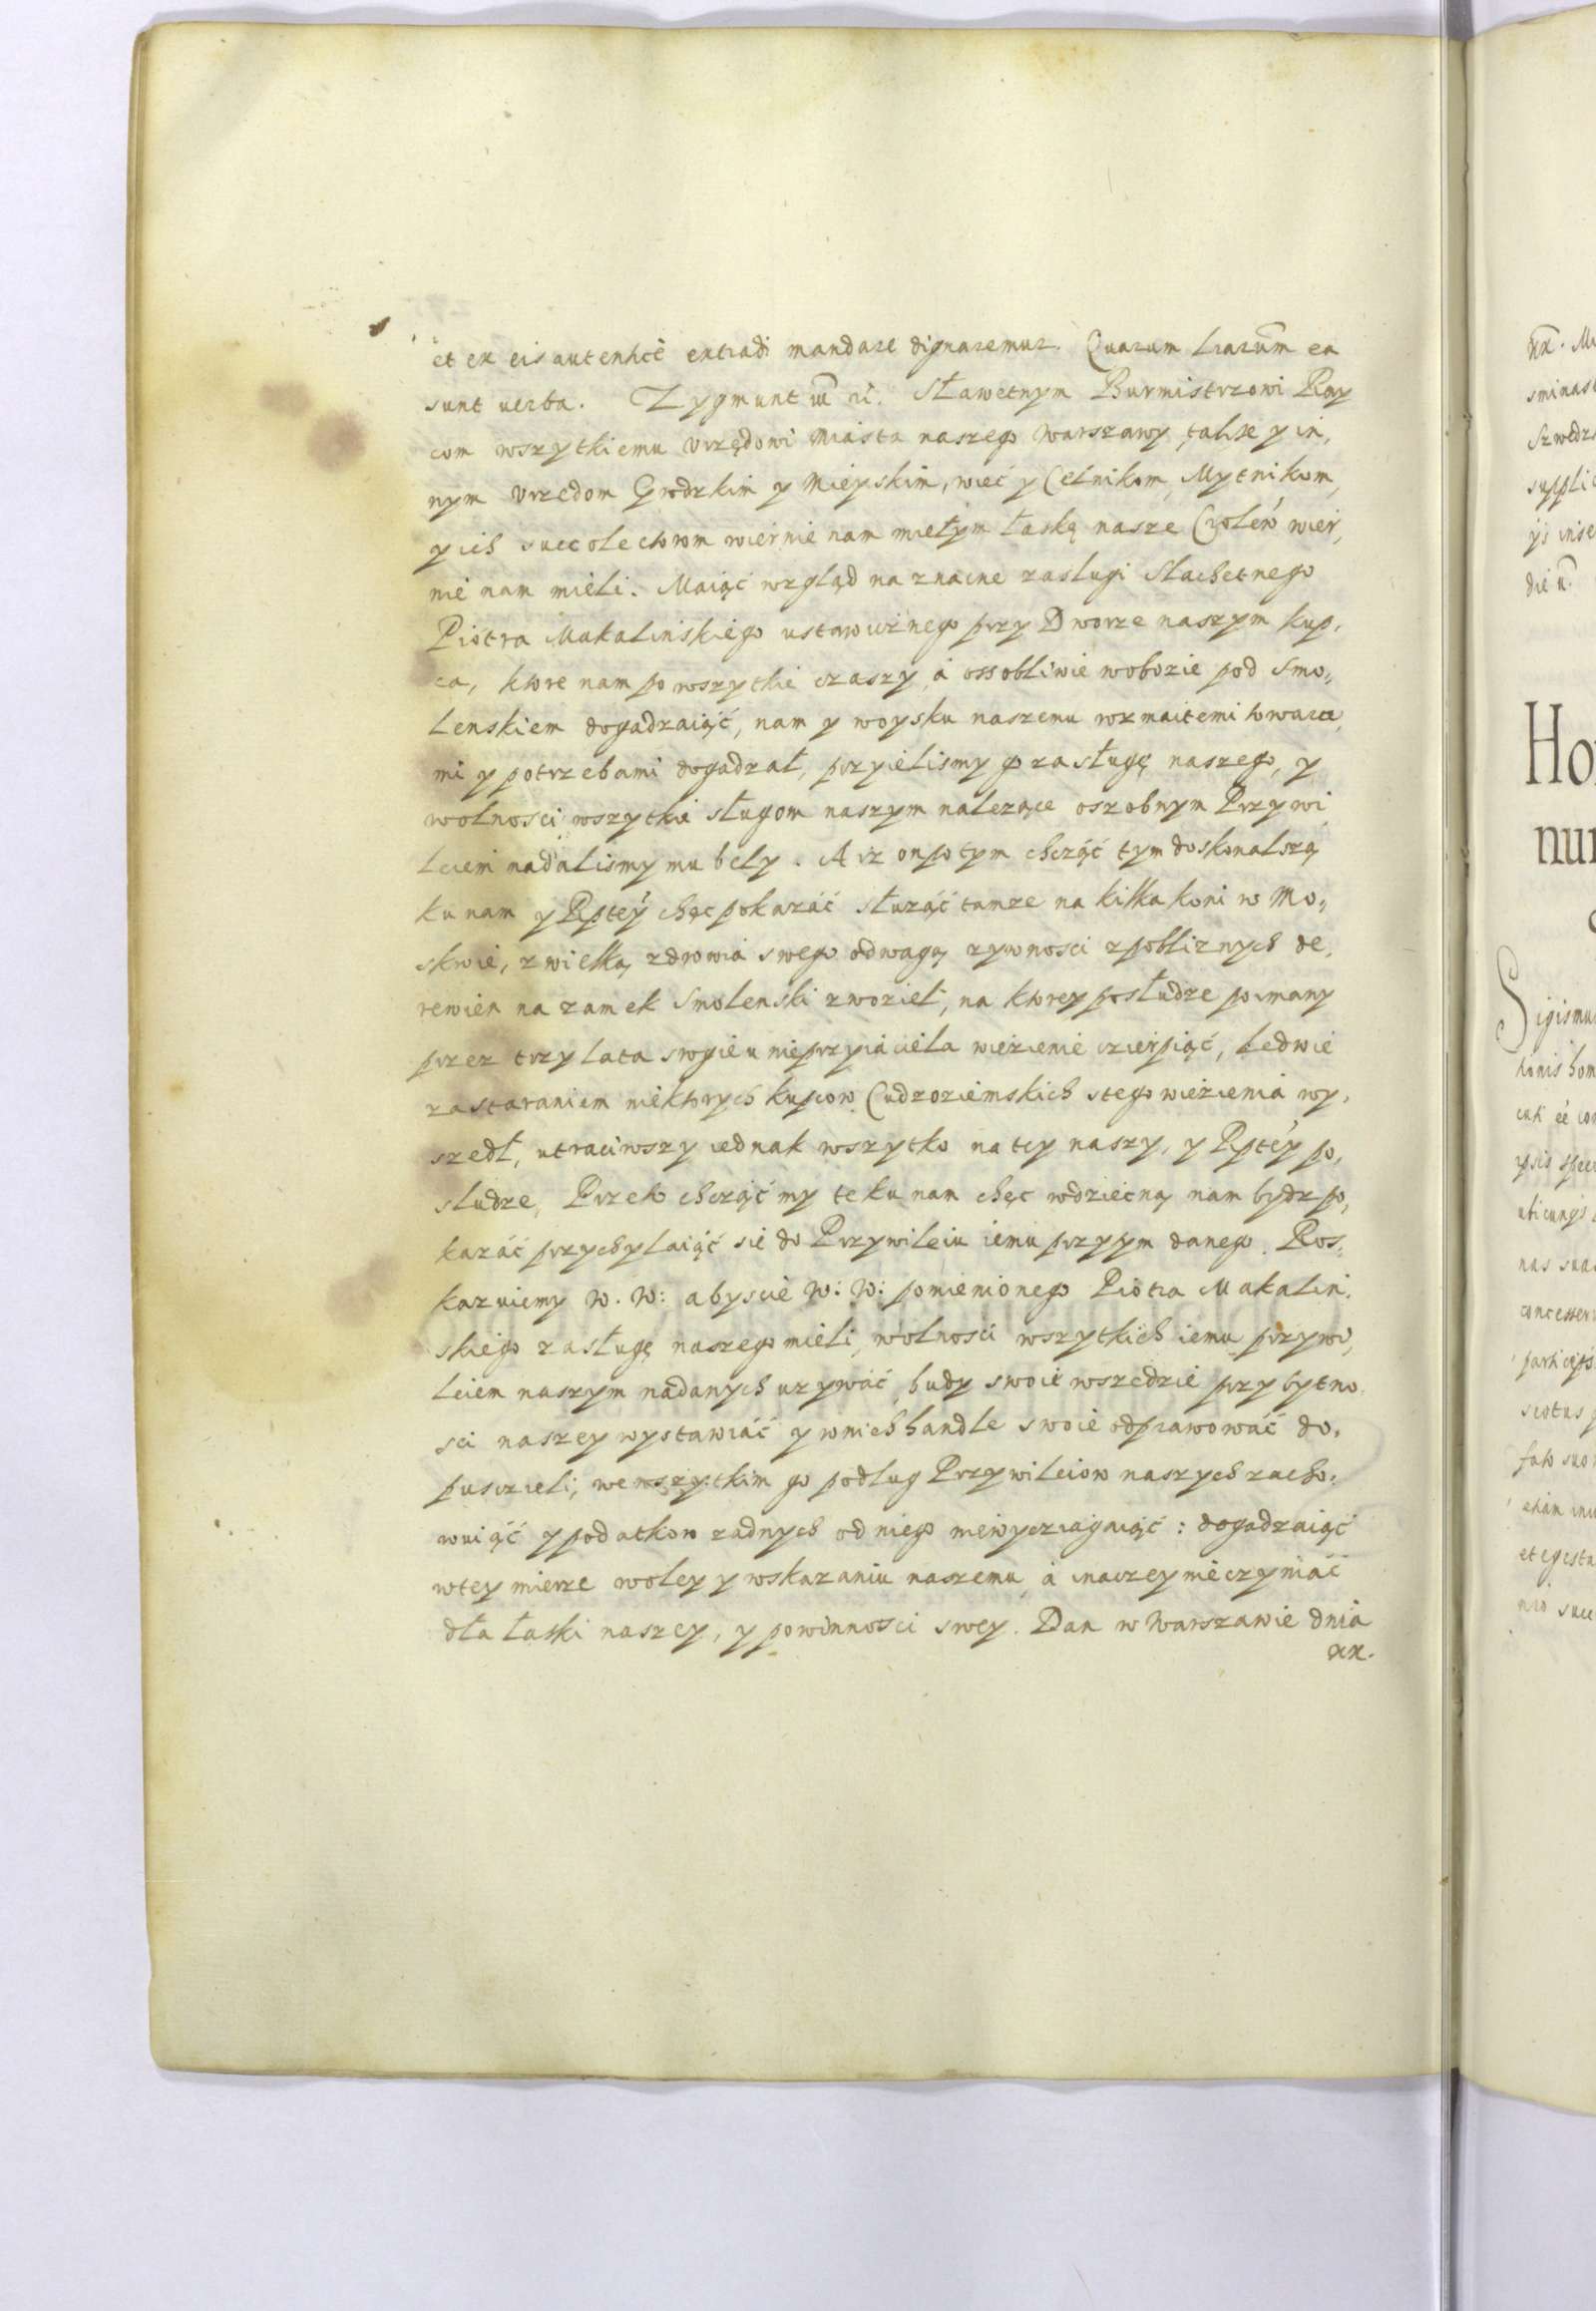 et ex eis autenticè extradi mandare dignaremur. Quarum Lrarum ea
sunt uerba. Zygmunt III etc. Sławetnym Burmistrzowi Raỳ
com wszytkiemu Vrzędowi Miasta naszego Warszawy, także y in,
nym Vrzedom Grodzkim y Mieyskim, wieć y Celnikom, Mytnikom,
y ich succolectorom wiernie nam miełym łaskę nasze Królew wier,
nie nam mieli. Maiąć wzgląd na znacne zasługi Slachetnego
Piotra Makalinskiego ustawicżnego przy Dworze naszym kup,
ca, ktore nam po wszytkie czaszy, à ossobliwie w obozie pod Smo,,
lenskiem dogadzaiąć, nam y woysku naszemu rozmaitemi towara,
mi y potrzebami dogadzał, przyielismy go za sługę naszego, y
wolnosci wszytkie sługom naszym nalezące oszobnym Przywi
leiem nadalismy mu bely. A iz on potym chcząć tym doskonalszą
ku nam y Rptey chęc pokazáć służąć tamze na kilka koni w Mo,,
skwie, z wielką zdrowia swego odwagą zywnosci z pobliznych de,
rewien na zamek Smolenski zwoziel, na ktorey posłudze poimany
przez trzy lata srogie u nieprzyiaciela wieżienie czierpiąć, ledwie
za staraniem niektorych kupcow Cudzoziemskich s tego wieżienia wy,
szedł, utraciwszy iednak wszytko na tey naszy, y Rptey po,
sludze, Przeto chcząć my te ku nam chęc wdziecną nam bydz po,
kazáć przychylaiąć sie do Przywileiu iemu przytym danego. Ros,
kazuiemy W. W: abyscie W: W: pomienionego Piotra Makalin,
skiego za sługę naszego mieli, wolnosci wszytkich iemu przywi,
leiem naszym nadanych uzywáć, budy swoie wszedzie przy bytno,
sci naszey wystawiáć y w nich handle swoie odprawowáć do,
puscieli, we wszytkim go podlug Przywileiow naszych zacho,
wuiąć y podatkow zadnych od niego niewycziągaiąć: dogadzaiąć
w tey mierze woley y wskazaniu naszemu, à inaczey nieczyniáć
dla łaski naszey, y powinnosci swey. Dan w Warszawie dnia
xx.